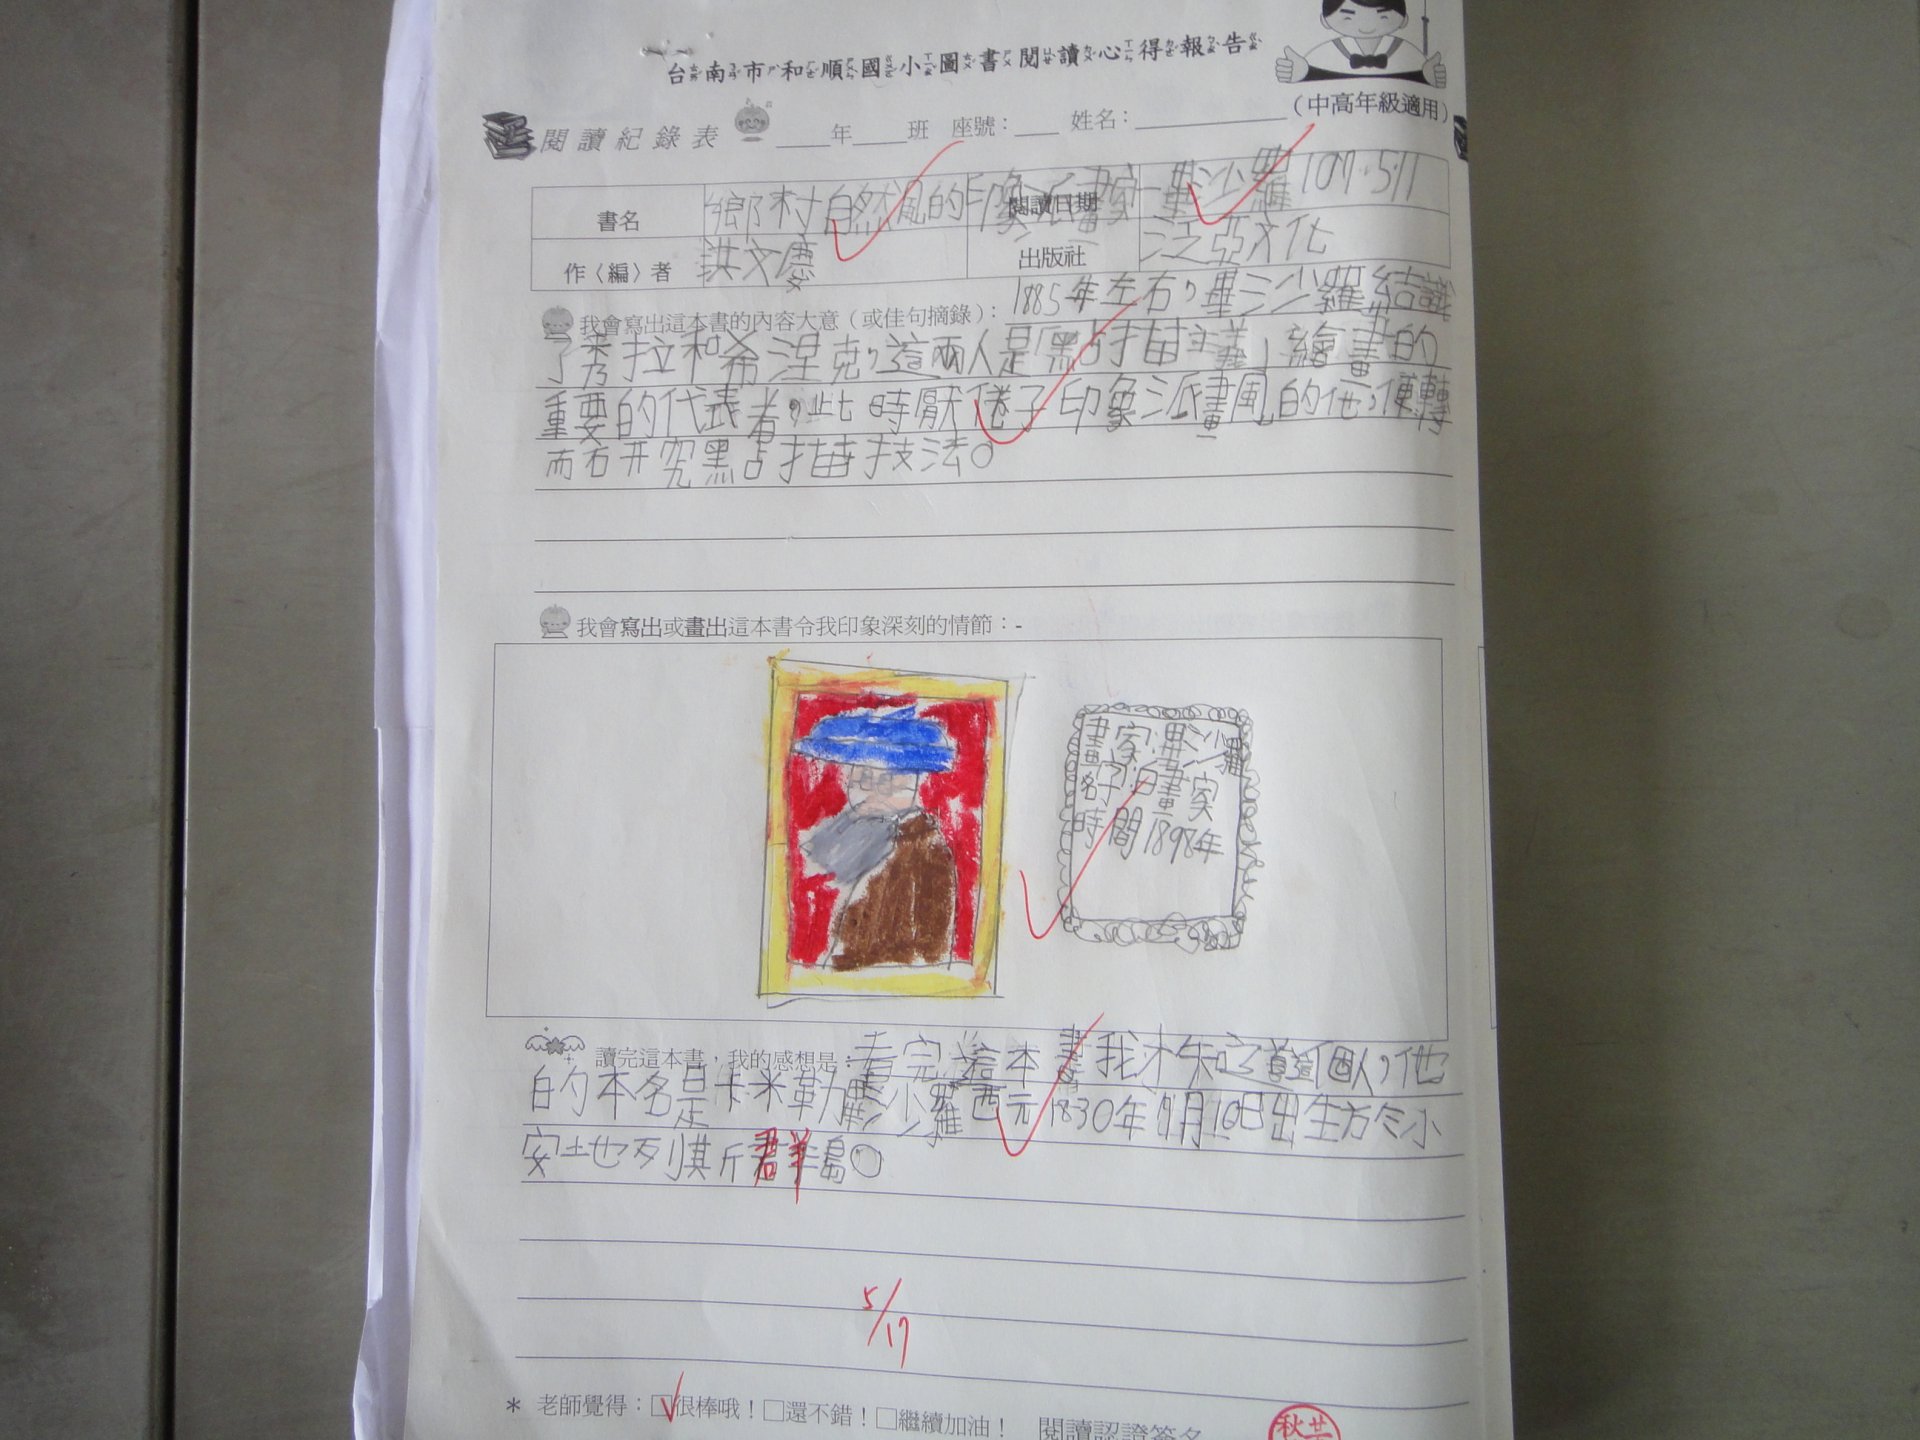 台南市和順國小圖書閱讀心得報告
(中高年級適用)
閱讀紀錄表 ____年____班 座號:___ 姓名:__________
書名 鄉村自然風的印象派畫家—畢沙羅 閱讀日期 107.5.11
作〈編〉者 洪文慶 出版社 泛亞文化
我會寫出這本書的內容大意(或佳句摘錄):1885年左右,畢沙羅結識
了秀拉和希涅克,這兩人是「點描主義」繪畫的
重要的代表者,此時厭倦了印象派畫風的他,便轉
而研究點描技法。
我會寫出或畫出這本書令我印象深刻的情節:-
畫家:畢沙羅
名字:自畫家
時間1898年
讀完這本書,我的感想是:看完這本書我才知道這個人,他
的本名是卡米勒畢沙羅西元1830年7月10日出生於小
安地列斯群島。
5/17
* 老師覺得:☑很棒哦!□還不錯!□繼續加油! 閱讀認證簽名
秋